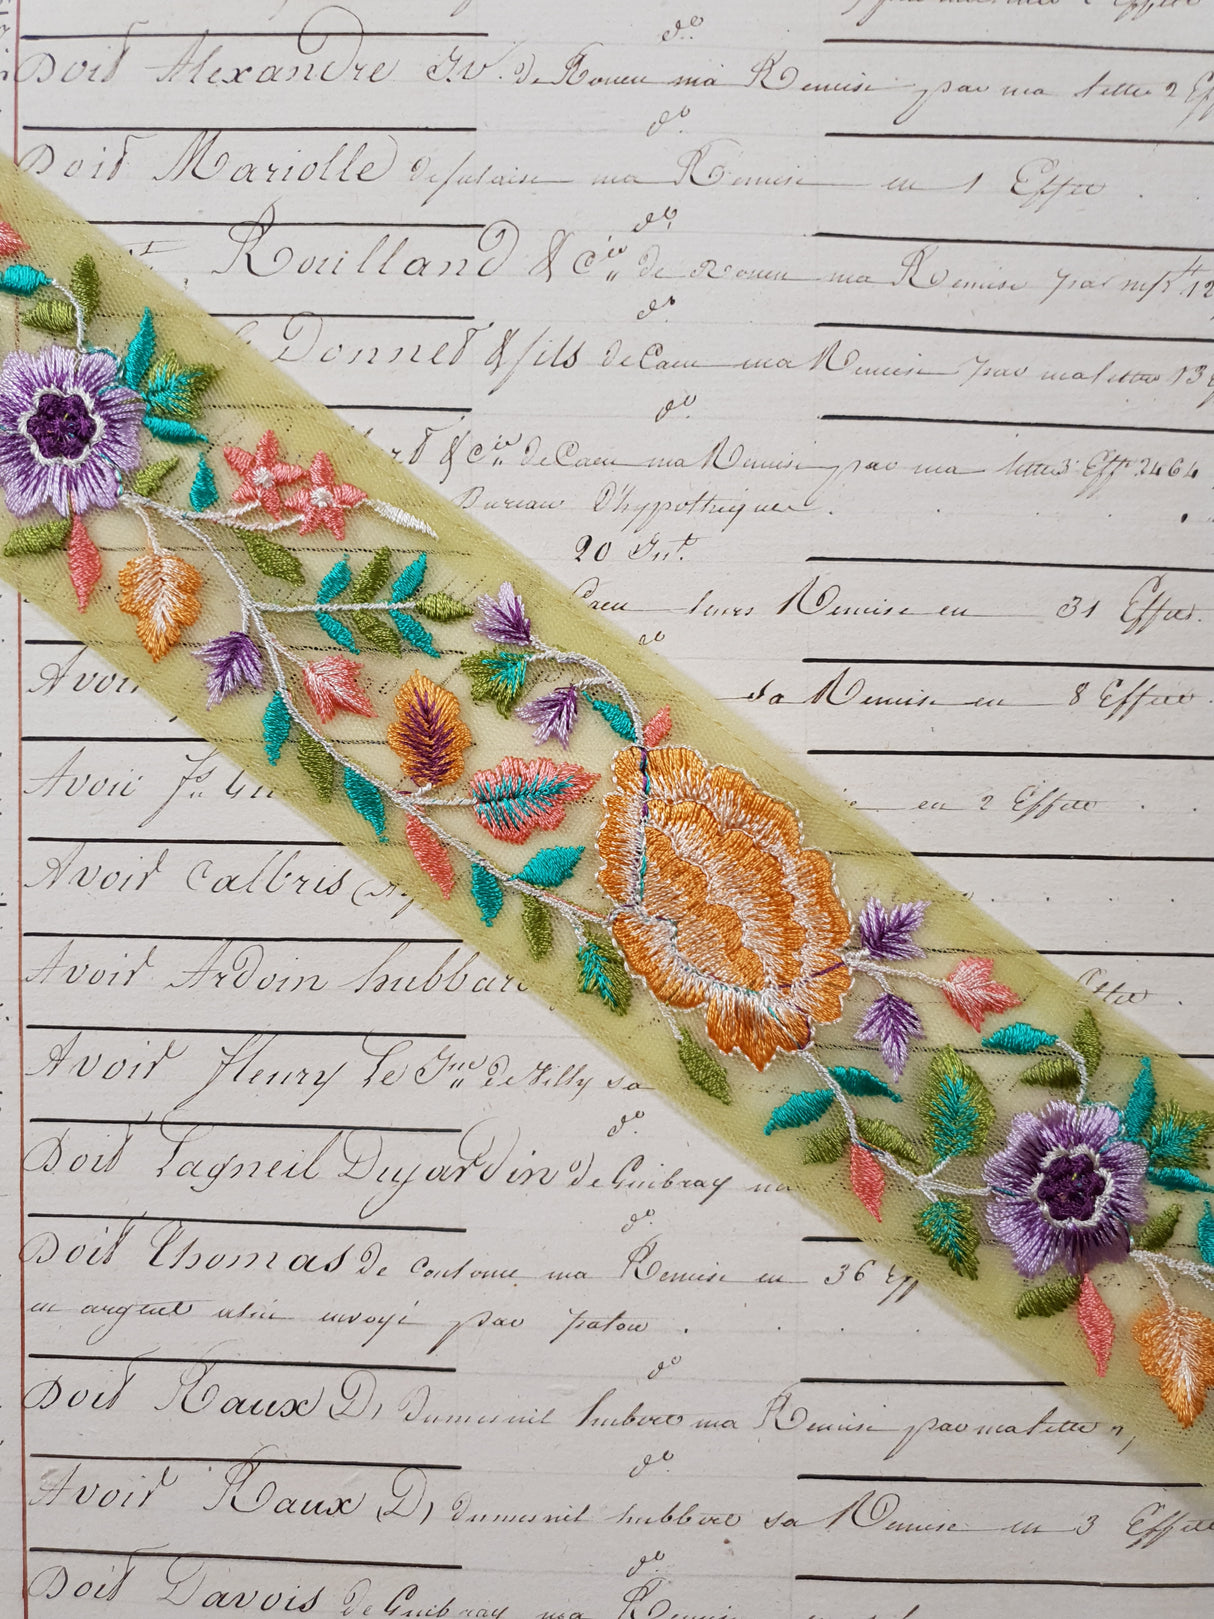 Doit Alexandre Jv. de Rouen ma Remise par ma lettre 2 Eff
do
Doit Mariolle de falaise ma Remise en 1 Effet
do
Rouilland & Cie de Rouen ma Remise par m/ 12
do
Donnet & fils de Caen ma Remise par ma lettre 13
do
& Cie de Caen ma Remise par ma lettre 3 Effts 2464
Bureau D'hypothèques
20 Jnt.
Caen leurs Remise en 31 Effets.
do
Avoir sa Remise en 8 Effets
Avoir fs en 2 Effets
Avoir Calbris
Avoir Ardoin hubbar
Avoir fleury Le Jne de Villy sa
do
Doit Lagneil Dujardin de Guibray ma
do
Doit Thomas de ma Remise en 36 Eff
en argent envoyé par
do
Doit Raux D, dumesnil hubert ma Remise par ma lettre
do
Avoir Raux D, dumesnil hubbert sa Remise en 3 Effets
do
Doit Davois de Guibray ma Remise